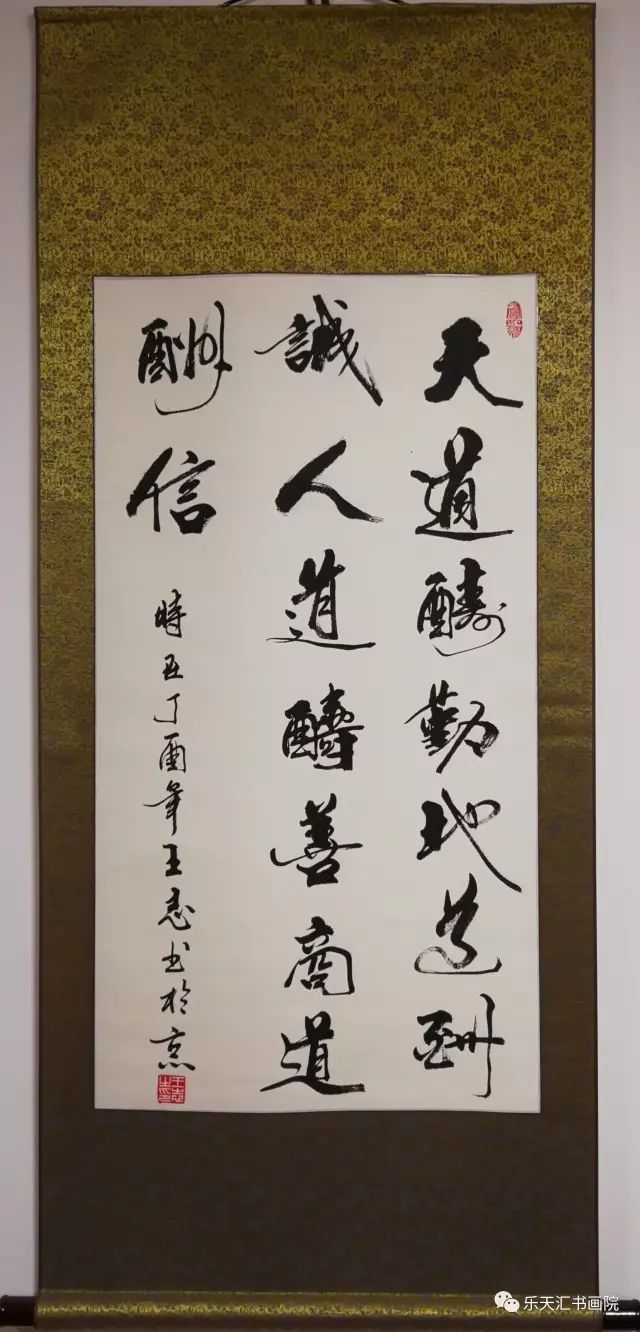 天道酬勤地道酬
誠人道酬善商道
酬信
時在丁酉年王志书於京
乐天汇书画院